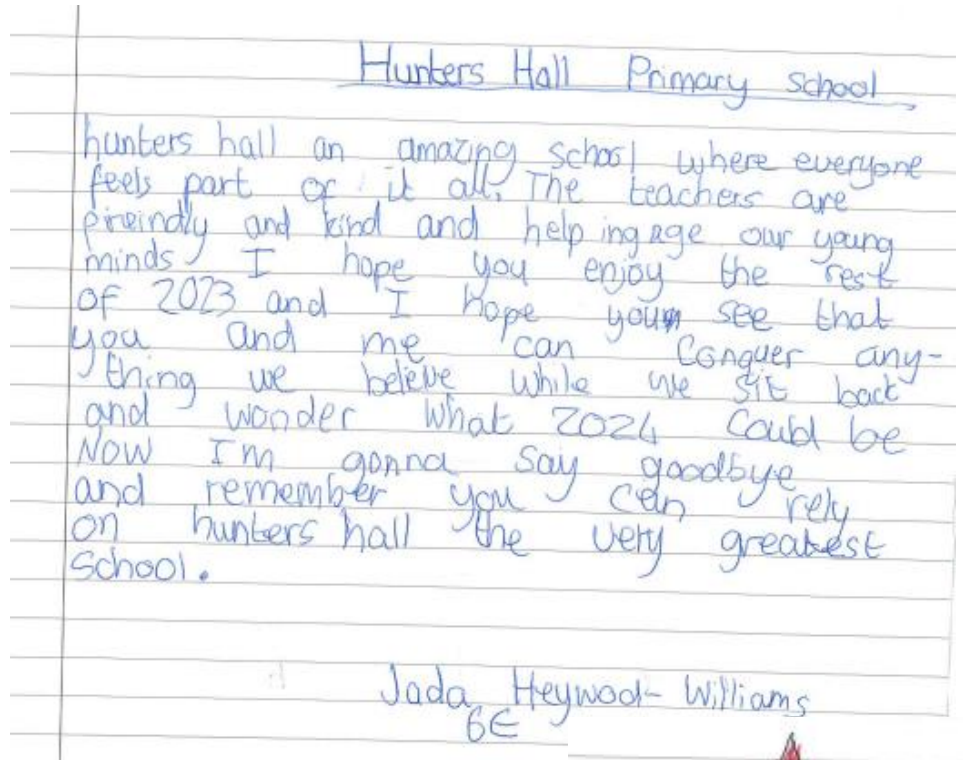 Hunters Hall Primary School
hunters hall an amazing school where everyone
feels part of it all. The teachers are
freindly and kind and help ingage our young
minds I hope you enjoy the rest
of 2023 and I hope you see that
you and me can Conquer any-
thing we believe while we sit back
and wonder what 2024 Could be
Now I'm gonna say goodbye
and remember you can rely
on hunters hall the very greatest
School.
Jada Heywod-Williams
6E